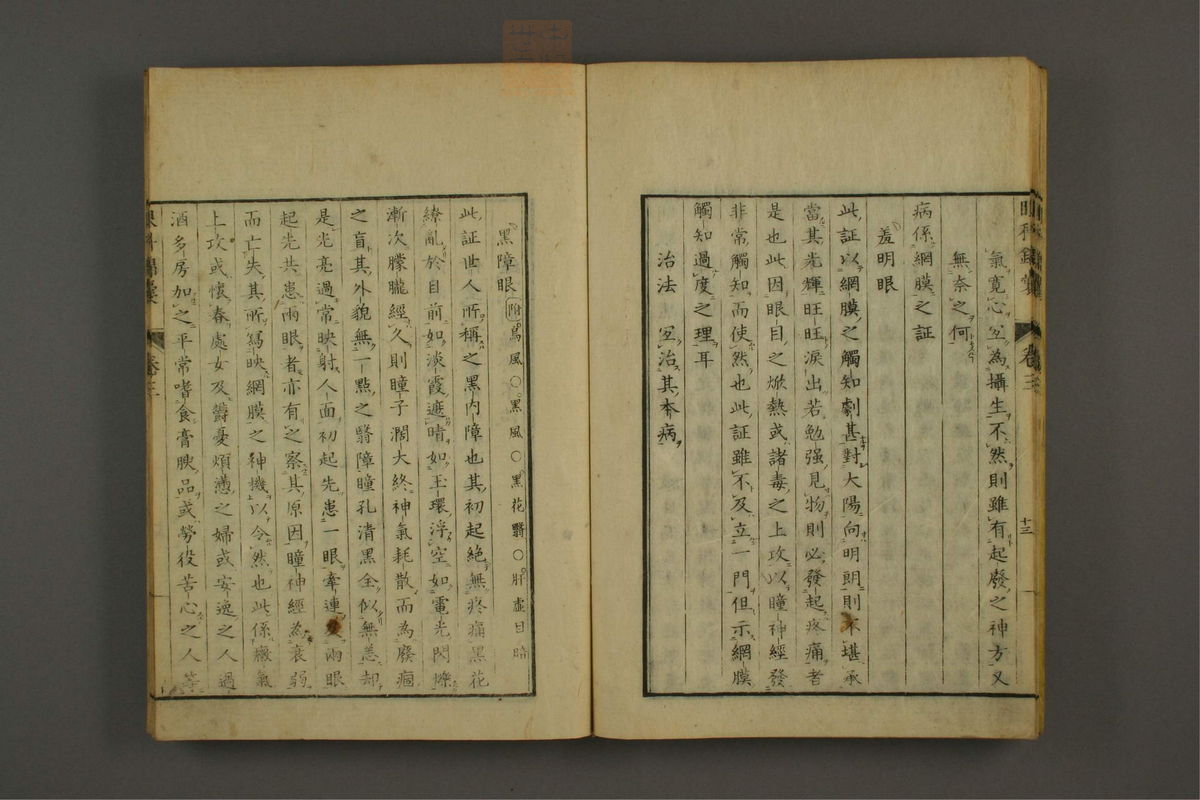 巻三
十三
氣寛心宜為攝生不然則雖有起廢之神方又
無奈之何
病係網膜之証
羞明眼
此証以網膜之觸知劇甚對大陽向明朗則不堪承
當其光輝旺旺淚出若勉强見物則必發起疼痛者
是也此因眼目之焮熱或諸毒之上攻以瞳神經發
非常觸知而使然也此証雖不及立一門但示網膜
觸知過度之理耳
治法 宜治其本病
黑障眼 附烏風○黑風○黑花翳○肝虚目暗
此証世人所稱之黑内障也其初起絶無疼痛黑花
繚亂於目前如淡霞遮晴如玉環浮空如電光閃爍
漸次朦朧經久則瞳子濶大終神氣耗散而為廢痼
之盲其外貌無一點之翳障瞳孔清黑全似無恙却
是光亮過常映射人面初起先患一眼牽連及兩眼
起先共患兩眼者亦有之察其原因瞳神經為衰弱
而亡失其所寫映網膜之神機以令然也此係癥氣
上攻或懷春處女及欝憂煩懣之婦或安逸之人過
酒多房加之平常嗜食膏腴品或勞役苦心之人等
巻三